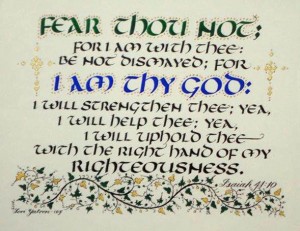 FEAR THOU NOT;
FOR I AM WITH THEE:
BE NOT DISMAYED; FOR
I AM THY GOD:
I WILL STRENGTHEN THEE; YEA,
I WILL HELP THEE; YEA,
I WILL UPHOLD THEE
WITH THE RIGHT HAND OF MY
RIGHTEOUSNESS.
Isaiah 41:10